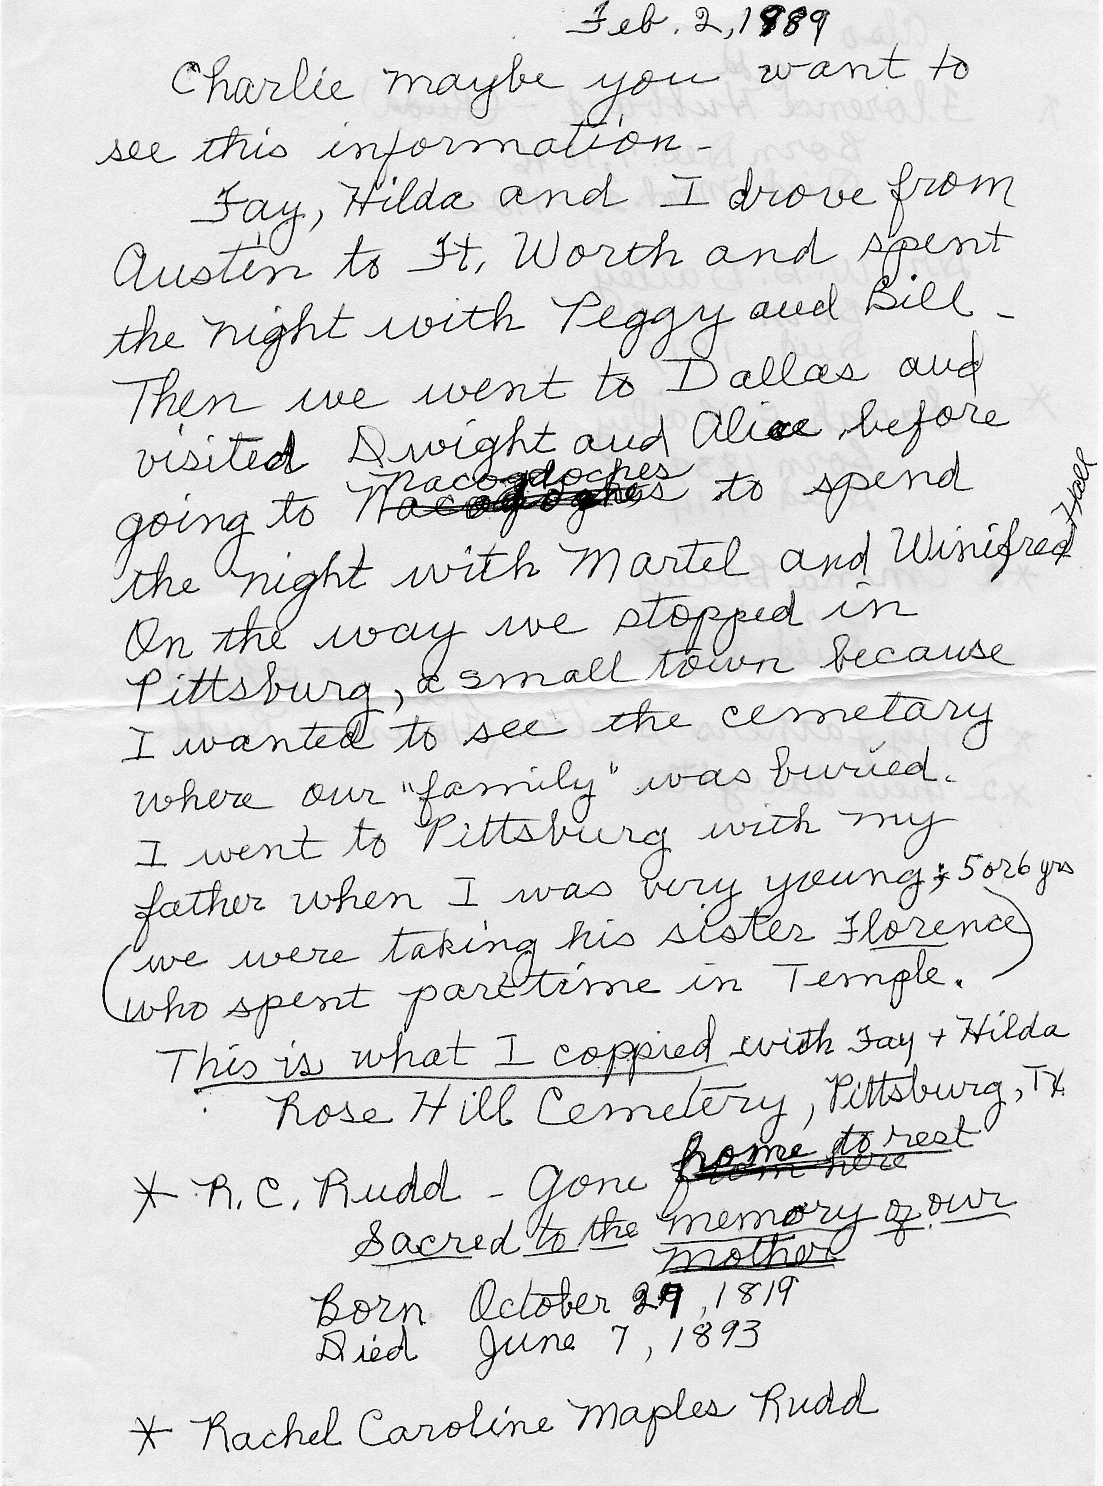 Feb. 2, 1989
Charlie maybe you want to
see this information -
Fay, Hilda and I drove from
Austin to Ft. Worth and spent
the night with Peggy and Bill -
Then we went to Dallas and
visited Dwight and Alice before
going to Nacogdoches to spend
the night with Martel and Winifred Hall
On the way we stopped in
Pittsburg, a small town because
I wanted to see the cemetary
where our "family" was buried.
I went to Pittsburg with my
father when I was very young; 5 or 6 yrs
(we were taking his sister Florence
who spent part time in Temple.)
This is what I coppied with Fay + Hilda
Rose Hill Cemetery, Pittsburg, TX
* R.C. Rudd - Gone home to rest
from here
Sacred to the memory of our
mother
Born October 29, 1819
Died June 7, 1893
* Rachel Caroline Maples Rudd